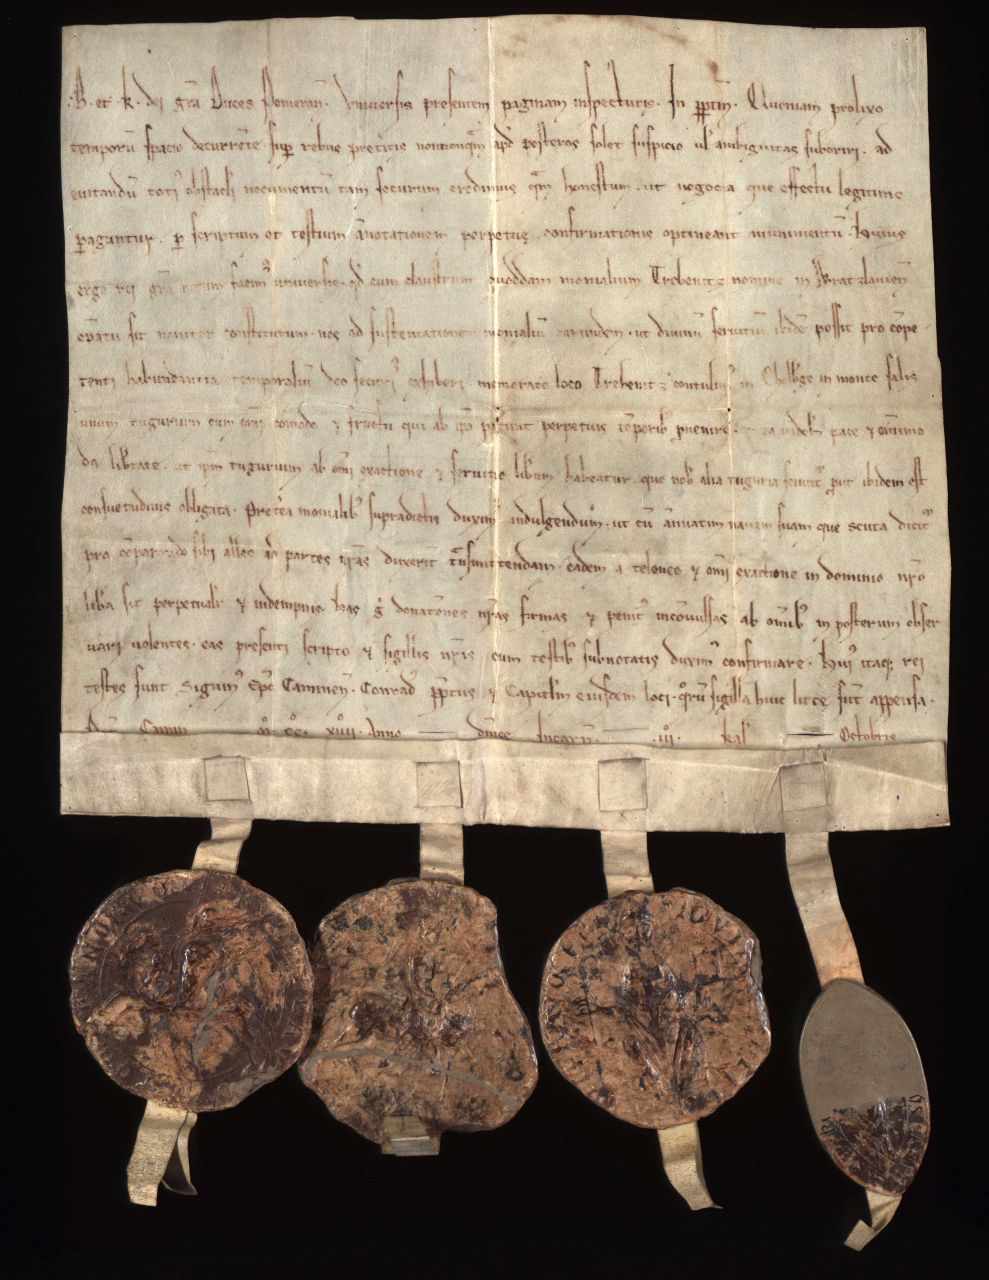 .B. et .K. dei gr̄a Duces Pomeran̄. Vniuersis presentem paginam inspecturis. In ꝑpm̄. Quoniam prolixo
temporū spacio decurrēte sup̄ rebus preteritis nonnūquā apd̄ posteros solet suspicio ul' ambiguitas suboriri. ad
euitandū toti' obstacli nocumentū tam securum credimus quam honestum. ut negocia que effectu legitimo
ꝑaguntur. ꝑ scriptum et testium ānotationem perpetuę confirmationis optineant munimentū. Huius
ergo rei gr̄a notum facim' uniuersis. qd̄ cum claustrum quoddam monialium Trebenitz nomine in Wratzlauien̄
ep̄atu sit nouiter constitutum. nos ad sustentationem monialiū earundem. ut diuinū seruitiū ibidē possit pro cōpe-
tenti habundantia temporaliū deo securi' exhiberi memorato loco Trebenitz contulim' in Cholb'ge in monte salis
unum tugurium cum om̄i comodo ⁊ fructu qui ab ip̄o pot'it perpetuis tēporib' ꝓuenire. ea uidelic pace ⁊ om̄imo
da lib'tate. ut ip̄m tugurium ab om̄i exactione ⁊ seruitio lib'um habeatur. quo nob' alia tuguria seruiūt ꝓut ibidem est
consuetudinis obligata. Pret'ea monialib' supradictis duxim' indulgendum. ut cū annuatim nauem suam que scuta dicit'
pro cōparando sibi allec ad partes nr̄as duxerit t̄nsmittendam. eadem a teloneo ⁊ om̄i exactione in dominio nr̄o
lib'a sit perpetuali' ⁊ indempnis. has g° donatōnes nr̄as firmas ⁊ penit' incōuulsas ab omīb' in posterum obser
uari uolentes. eas presenti scripto ⁊ sigillis nr̄is cum testib' subnotatis duxim' confirmare. Hui' itaq; rei
testes sunt Sigwin' Ep̄c Caminen̄. Conrad' p̄ptus ⁊ Capitl'm eiusdem loci. quorū sigilla huic litt'e sūt appensa.
Dat̄ Camin M°. CC°. xviii. Anno dn̄ice Incarn̄. iii°. kal' Octobris